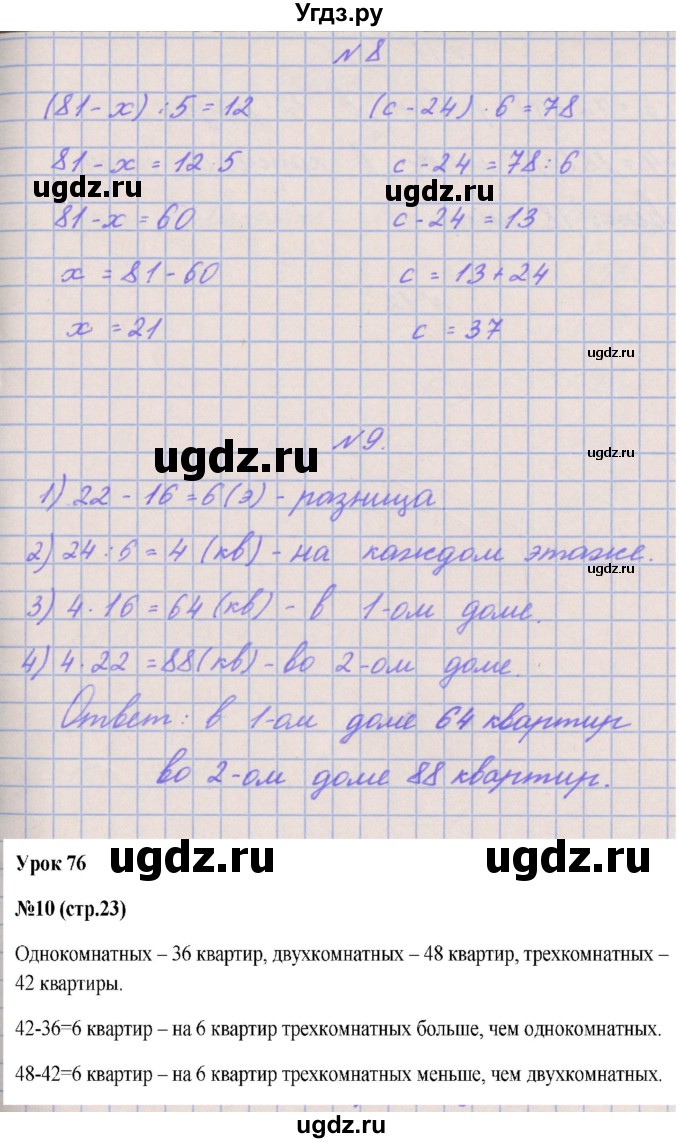 Угдз.ру
№ 8
(81 - x) : 5 = 12 (c - 24) · 6 = 78
81 - x = 12 · 5 c - 24 = 78 : 6
ugdz.ru ugdz.ru
81 - x = 60 c - 24 = 13
x = 81 - 60 c = 13 + 24
x = 21 c = 37
ugdz.ru
№ 9.
ugdz.ru ugdz.ru
1) 22 - 16 = 6 (э) - разница
2) 24 : 6 = 4 (кв) - на каждом этаже.
ugdz.ru
3) 4 · 16 = 64 (кв) - в 1-ом доме.
4) 4 · 22 = 88 (кв) - во 2-ом доме.
Ответ: в 1-ом доме 64 квартир
во 2-ом доме 88 квартир.
Урок 76 ugdz.ru ugdz.ru
№10 (стр.23)
Однокомнатных – 36 квартир, двухкомнатных – 48 квартир, трехкомнатных –
42 квартиры.
42-36=6 квартир – на 6 квартир трехкомнатных больше, чем однокомнатных.
48-42=6 квартир – на 6 квартир трехкомнатных меньше, чем двухкомнатных.
ugdz.ru